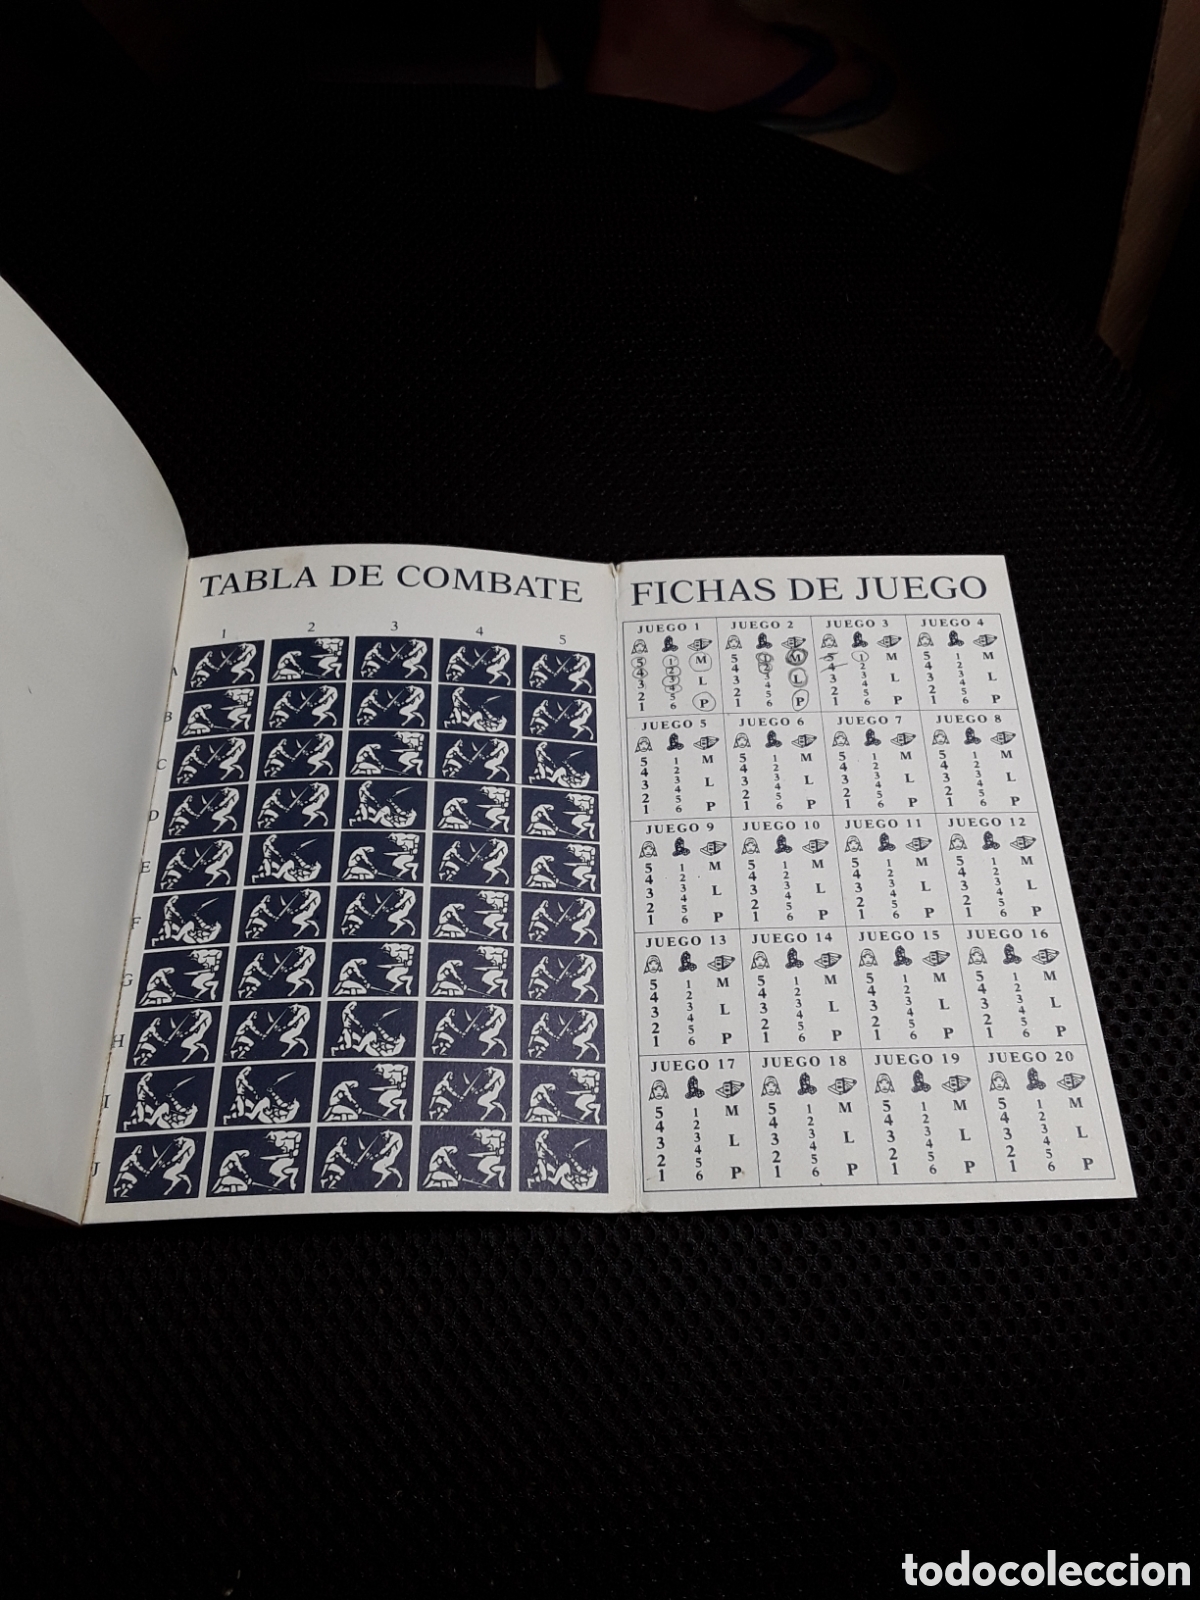 TABLA DE COMBATE
1 2 3 4 5
A
B
C
D
E
F
G
H
I
J
FICHAS DE JUEGO
JUEGO 1 JUEGO 2 JUEGO 3 JUEGO 4
5 1 M 5 1 M 5 1 M 5 1 M
4 2 4 2 4 2 4 2
3 3 L 3 3 L 3 3 L 3 3 L
4 4 4 4
2 5 2 5 2 5 2 5
1 6 P 1 6 P 1 6 P 1 6 P
JUEGO 5 JUEGO 6 JUEGO 7 JUEGO 8
5 1 M 5 1 M 5 1 M 5 1 M
4 2 4 2 4 2 4 2
3 3 L 3 3 L 3 3 L 3 3 L
4 4 4 4
2 5 2 5 2 5 2 5
1 6 P 1 6 P 1 6 P 1 6 P
JUEGO 9 JUEGO 10 JUEGO 11 JUEGO 12
5 1 M 5 1 M 5 1 M 5 1 M
4 2 4 2 4 2 4 2
3 3 L 3 3 L 3 3 L 3 3 L
4 4 4 4
2 5 2 5 2 5 2 5
1 6 P 1 6 P 1 6 P 1 6 P
JUEGO 13 JUEGO 14 JUEGO 15 JUEGO 16
5 1 M 5 1 M 5 1 M 5 1 M
4 2 4 2 4 2 4 2
3 3 L 3 3 L 3 3 L 3 3 L
4 4 4 4
2 5 2 5 2 5 2 5
1 6 P 1 6 P 1 6 P 1 6 P
JUEGO 17 JUEGO 18 JUEGO 19 JUEGO 20
5 1 M 5 1 M 5 1 M 5 1 M
4 2 4 2 4 2 4 2
3 3 L 3 3 L 3 3 L 3 3 L
4 4 4 4
2 5 2 5 2 5 2 5
1 6 P 1 6 P 1 6 P 1 6 P
todocoleccion